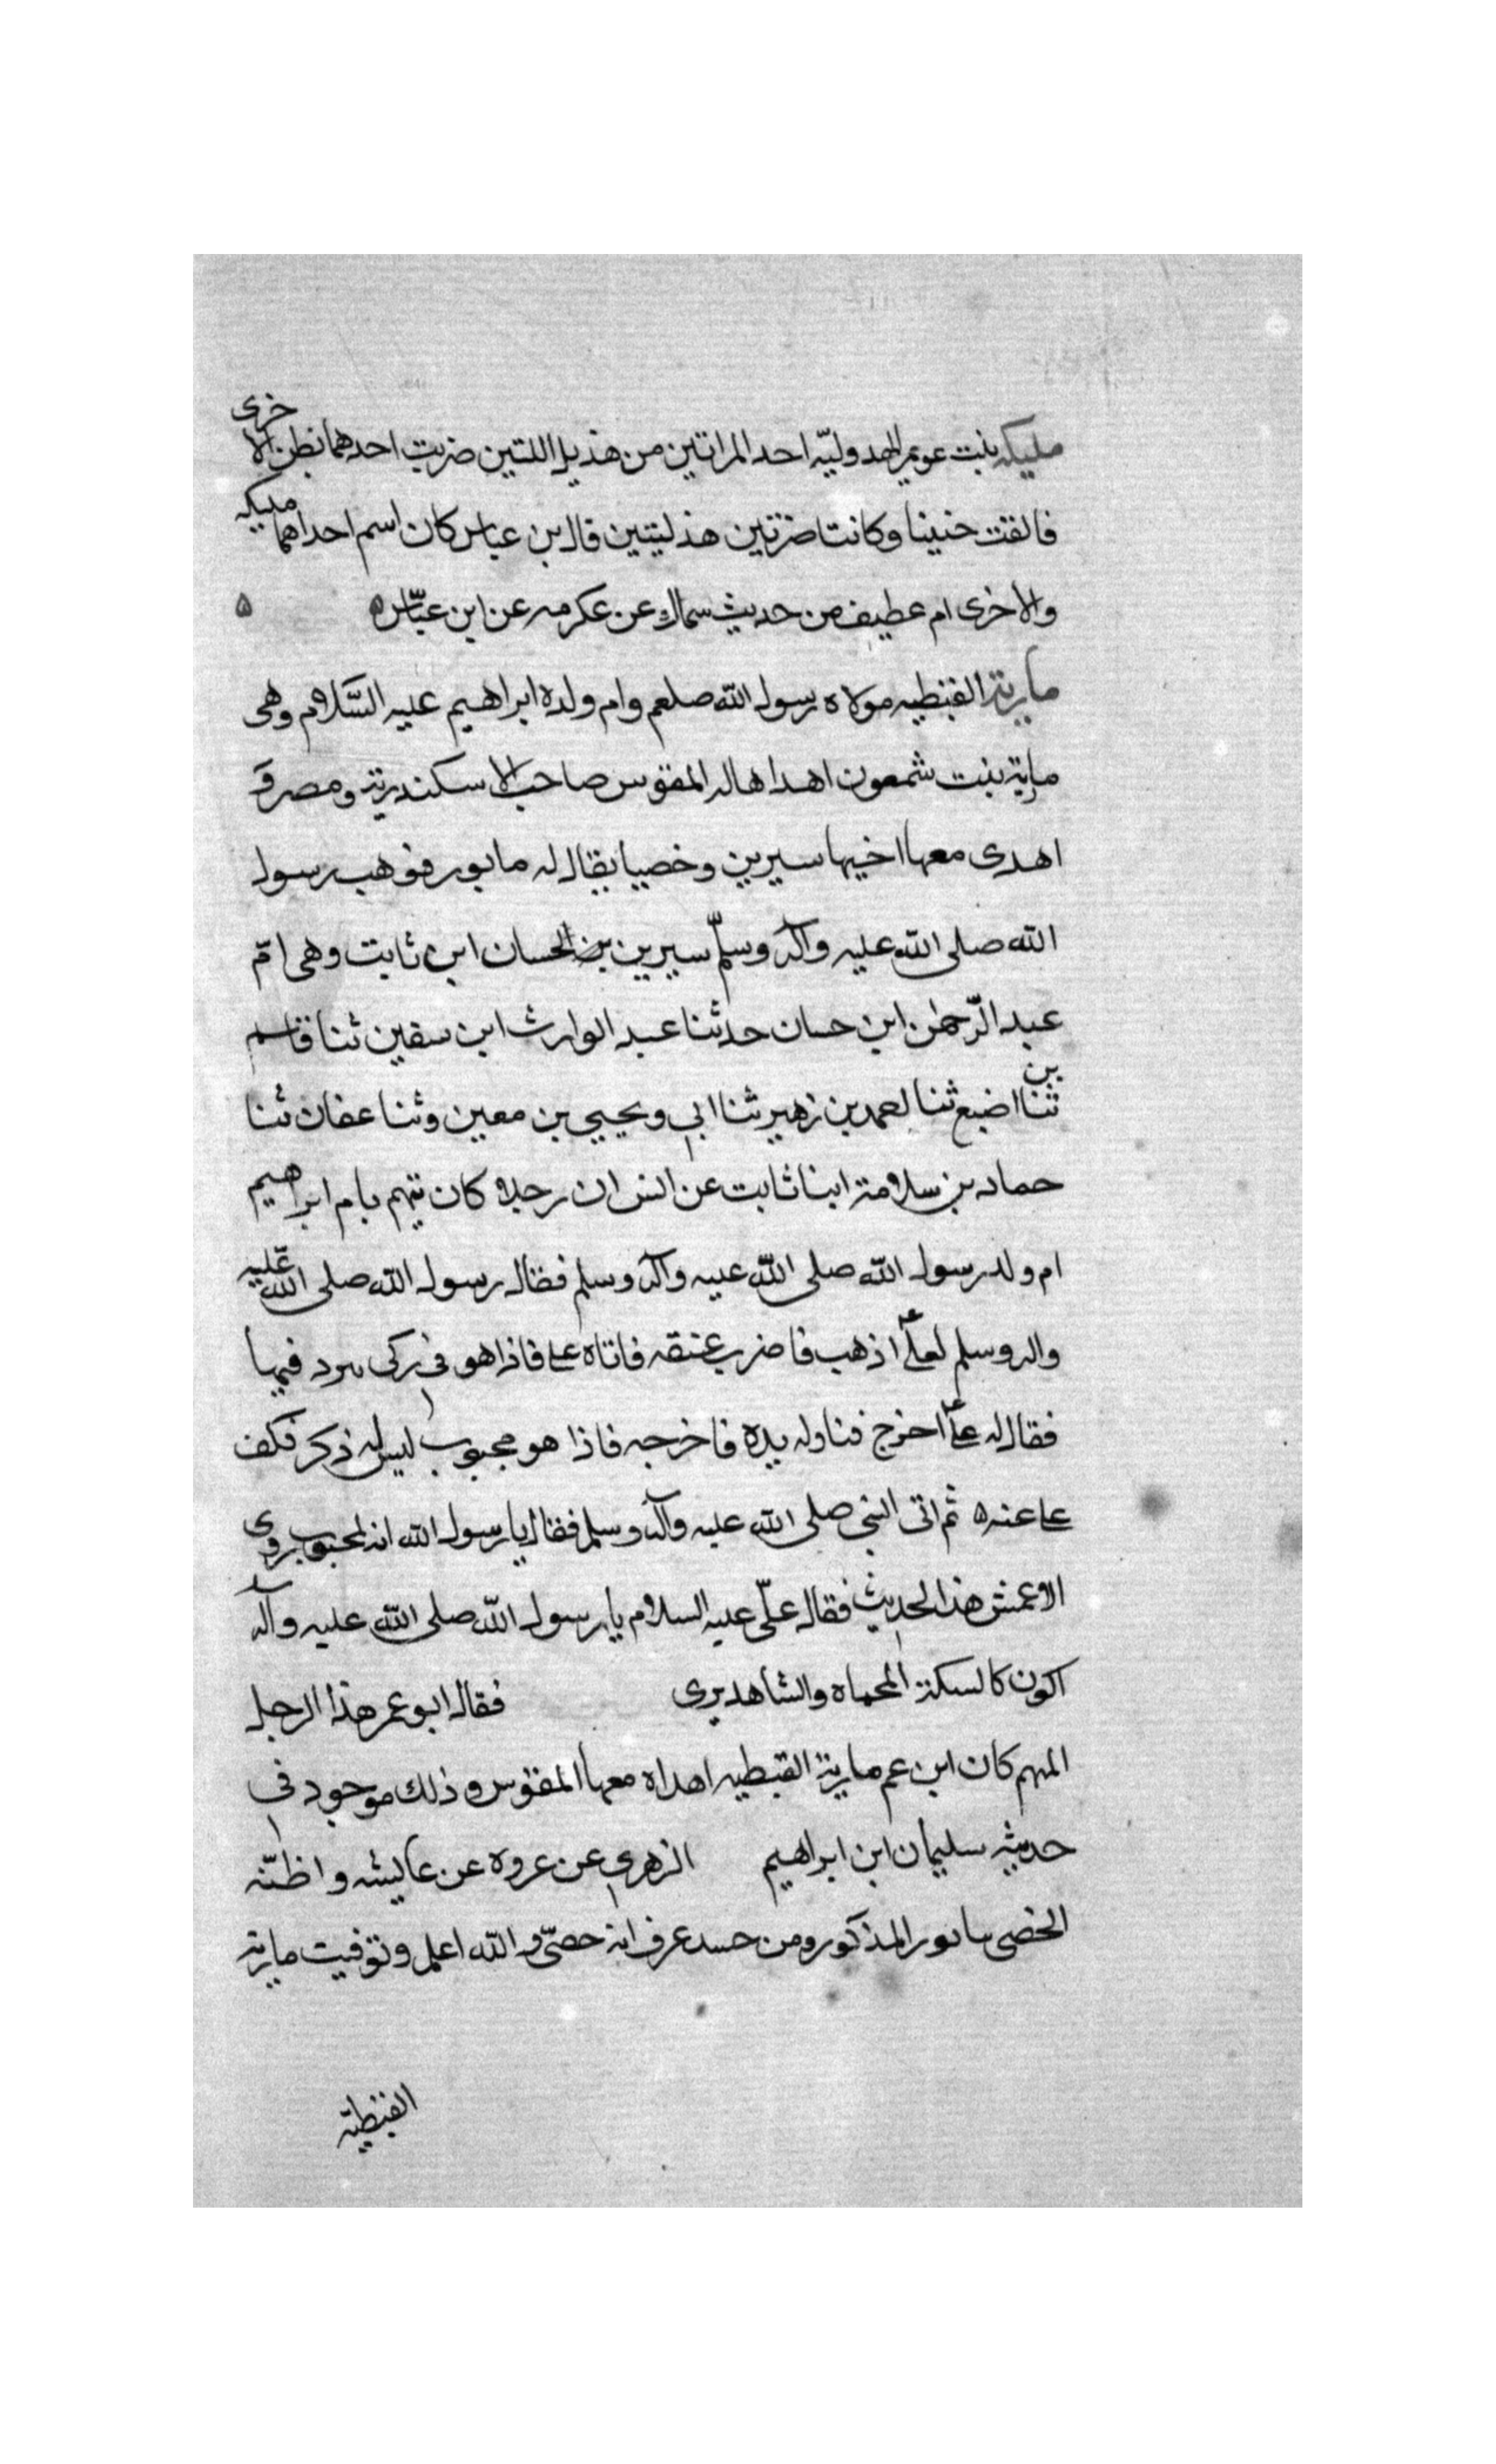 مليكه بنت عويمر الهدوليّه احد المراتين من هذيل اللتين ضربت احدهما بطن الاخرى
فالقت جنينا وكانتا ضرتين هذليتين قال بن عباس كان اسم احداهما مليكه
والاخرى ام عطيف من حديث سماك عن عكرمه عن ابن عبّاس ه ه
مارية القبطيه مولاه رسول الله صلعم وام ولده ابراهيم عليه السّلام وهى
مارية بنت شمعون اهداها له المقوس صاحب الاسكندرية ومصر و
اهدى معها اخيها سيرين وخصيا يقال له مابور فوهب رسول
الله صلى الله عليه وآله وسلّم سيرين لحسان ابن ثابت وهى امّ
عبد الرّحمن ابن حسان حدثنا عبد الوارث ابن سفين ثنا قاسم
بن اضبع ثنا لعمد بن زهير ثنا ابي ويحيي بن معين وثنا عفان ثنا
حماد بن سلامة ابنا ثابت عن انس ان رجلا كان يتهم بام ابراهيم
ام ولد رسول الله صلى الله عليه وآله وسلم فقال رسول الله صلى الله عليه
واله وسلم لعلّى اذهب فاضرب عنقه فاتاه على فاذا هو في ركى سرد فيها
فقال له علّى اخرج فناوله يده فاخرجه فاذا هو مجبوب ليس له ذكر فكف
على عنه ه ثم اتى النبي صلى الله عليه وآله وسلم فقال يا رسول الله انه لمجبوب روى
الاعمش هذا الحديث فقال علّى عليه السلام يا رسول الله صلى الله عليه وآله
اكون كالسكة المحماه والشاهد يرى فقال ابو عمر هذا الرجل
المهم كان ابن عم مارية القبطيه اهداه معها المقوس وذلك موجود في
حديثه سليمان ابن ابراهيم الزهري عن عروه عن عايشه واظنّه
الخصى مابور المذكور ومن حسد عرف انه خصىّ والله اعلم وتوفيت مارية
القبطيّه